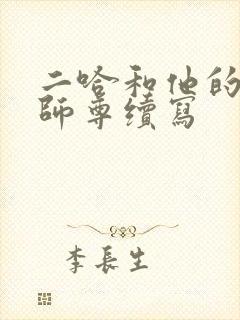 二哈和他的
師尊續寫
李長生